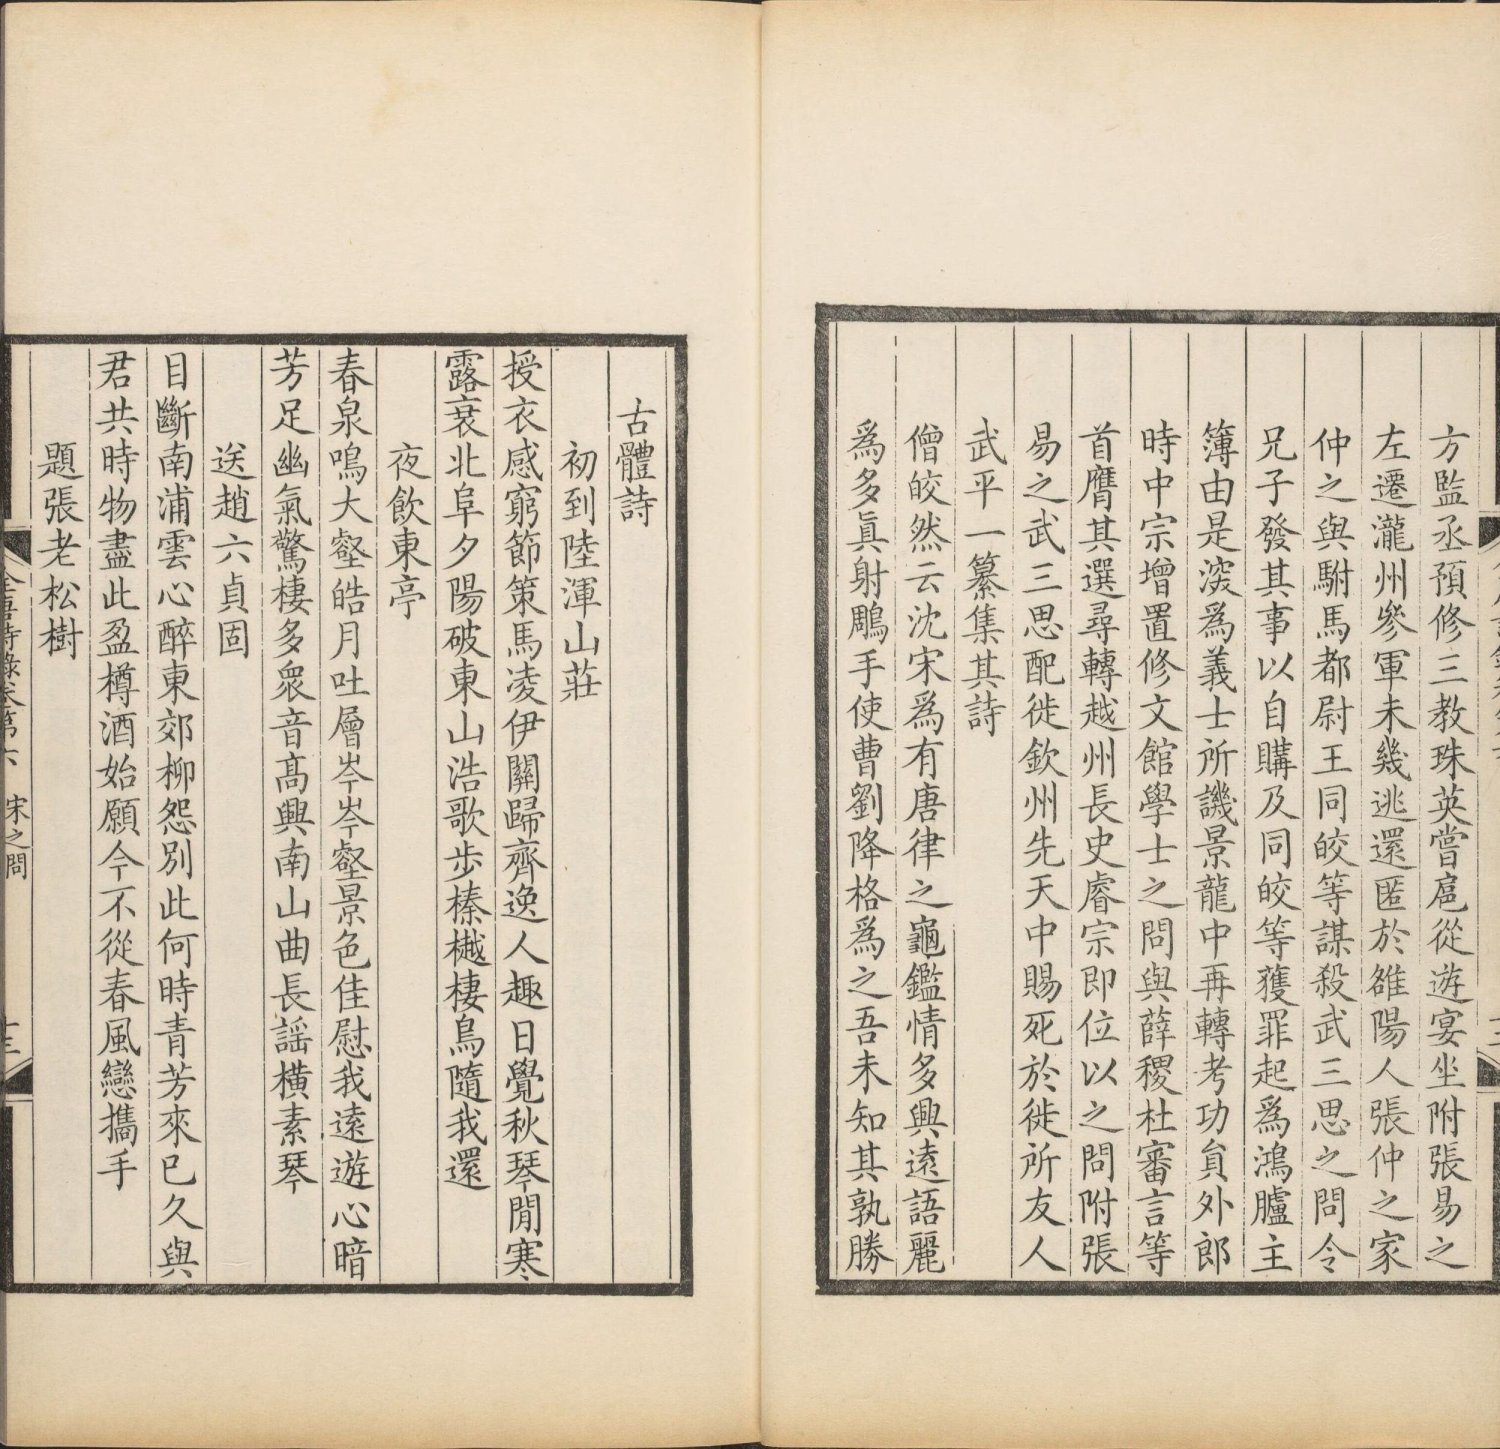 方監丞預修三教珠英嘗扈從遊宴坐附張易之
左遷瀧州參軍未幾逃還匿於雒陽人張仲之家
仲之與駙馬都尉王同皎等謀殺武三思之問令
兄子發其事以自贖及同皎等獲罪起爲鴻臚主
簿由是深爲義士所譏景龍中再轉考功員外郎
時中宗增置修文館學士之問與薛稷杜審言等
首膺其選尋轉越州長史睿宗即位以之問附張
易之武三思配徙欽州先天中賜死於徙所友人
武平一纂集其詩
僧皎然云沈宋爲有唐律之龜鑑情多興遠語麗
爲多眞射鵰手使曹劉降格爲之吾未知其孰勝
古體詩
初到陸渾山莊
授衣感窮節策馬凌伊關歸齊逸人趣日覺秋琴閒寒
露衰北阜夕陽破東山浩歌步榛樾棲鳥隨我還
夜飲東亭
春泉鳴大壑皓月吐層岑岑壑景色佳慰我遠遊心暗
芳足幽氣驚棲多衆音高興南山曲長謠橫素琴
送趙六貞固
目斷南浦雲心醉東郊柳怨別此何時青芳來已久與
君共時物盡此盈樽酒始願今不從春風戀攜手
題張老松樹
全唐詩錄卷第六 宋之問 十三